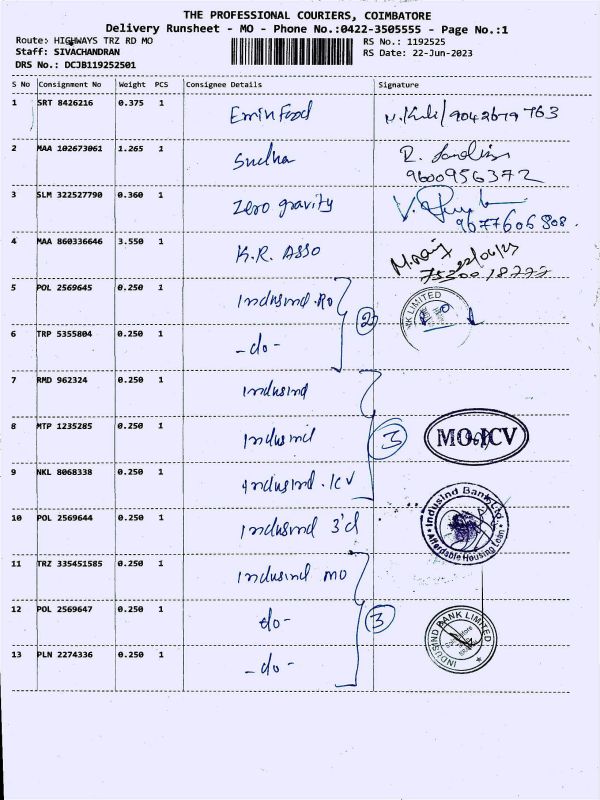 THE PROFESSIONAL COURIERS, COIMBATORE
Delivery Runsheet - MO - Phone No.:0422-3505555 - Page No.:1
Route: HIGHWAYS TRZ RD MO
RS No.: 1192525
Staff: SIVACHANDRAN
RS Date: 22-Jun-2023
DRS No.: DCJB119252501
S No Consignment No Weight PCS Consignee Details Signature
1 SRT 8426216 0.375 1 Emin Food 9042679763
2 MAA 102673061 1.265 1 Sudha R.
9600956372
3 SLM 322527790 0.360 1 Zero gravity V.
9677606808.
4 MAA 860336646 3.550 1 K.R. ASSO
5 POL 2569645 0.250 1 Indusind .RO
2
LIMITED
6 TRP 5355804 0.250 1 -do-
7 RMD 962324 0.250 1 Indusind
8 MTP 1235285 0.250 1 Indusind 3 MO ICV
9 NKL 8068338 0.250 1 Indusind .ICV
10 POL 2569644 0.250 1 Indusind 3'rd IndusInd Bank Ltd. Affordable Housing Loan
11 TRZ 335451585 0.250 1 Indusind MO
12 POL 2569647 0.250 1 do- 3 INDUSIND BANK LIMITED
13 PLN 2274336 0.250 1 -do-